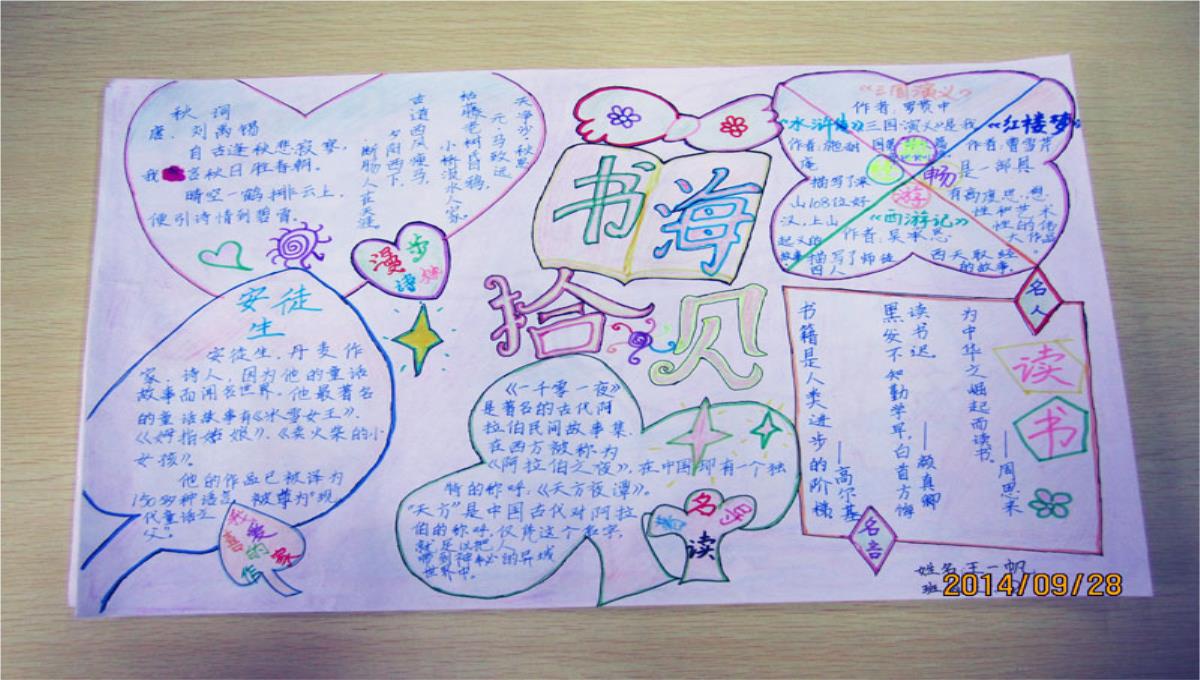 书海
拾贝
秋词
唐、刘禹锡
自古逢秋悲寂寥，
我言秋日胜春朝。
晴空一鹤排云上，
便引诗情到碧霄。
天净沙·秋思
元·马致远
枯藤老树昏鸦，
小桥流水人家。
古道西风瘦马，
夕阳西下，
断肠人在天涯。
漫步诗
《三国演义》
作者：罗贯中
三国演义》是我
《水浒传》
作者：施耐
庵
描写了梁
山108位好
汉，上山
起义的
故事
《红楼梦》
作者：曹雪芹
是一部具
有高度思想
性和艺术
性的伟
大作品
畅
游
《西游记》
作者：吴承恩
描写了师徒
四人
西天取经
的故事。
安徒
生
安徒生，丹麦作
家、诗人，因为他的童话
故事而闻名世界。他最著名
的童话故事有《冰雪女王》、
《拇指姑娘》、《卖火柴的小
女孩》。
他的作品已被译为
150多种语言，被尊为“现
代童话之
父”。
爱
的
作
家
《一千零一夜》
是著名的古代阿
拉伯民间故事集，
在西方被称为
《阿拉伯之夜》，在中国却有一个独
特的称呼：《天方夜谭》。
“天方”是中国古代对阿拉
伯的称呼，仅凭这个名字，
就足以把人
带到神秘的异域
世界中。
名
读
名人
读书
为中华之崛起而读书。
——周恩来
黑发不知勤学早，白首方悔
读书迟。
——颜真卿
书籍是人类进步的阶梯
——高尔基
名言
姓名：王一帆
班
2014/09/28